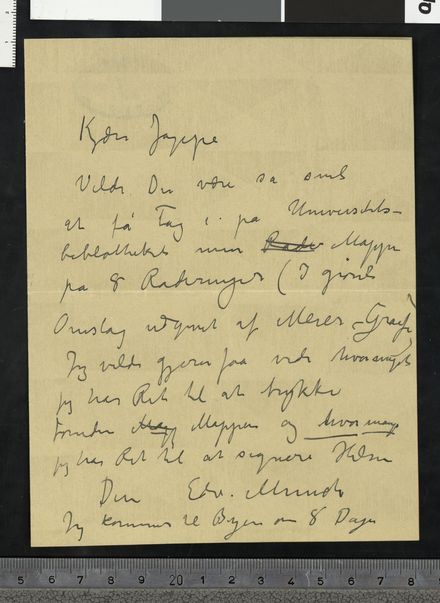 Kjære Jappe
Vilde Du være så snil
at få Tag i på Universitets-
bibliotheket min Rade Mappe
på 8 Raderinger (I grønt
Omslag udgivet af Meier-Graefe
Jeg vilde gjerne faa vide hvormeget
jeg har Ret til at trykke
foruden Mapp Mappen og hvormange
jeg har Ret til at signere Hilsen
Din Edv. Munch
Jeg kommer til Byen om 8 Dage